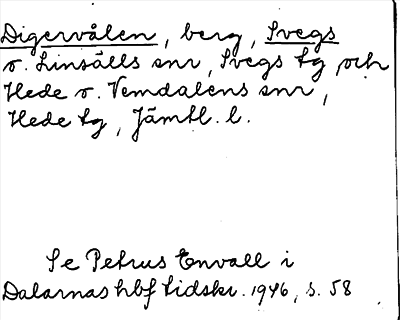 Digervålen, berg, Svegs
o. Linsälls snr, Svegs tg och
Hede o. Vemdalens snr,
Hede tg, Jämtl. l.
Se Petrus Envall i
Dalarnas hbf tidskr. 1946, s. 58